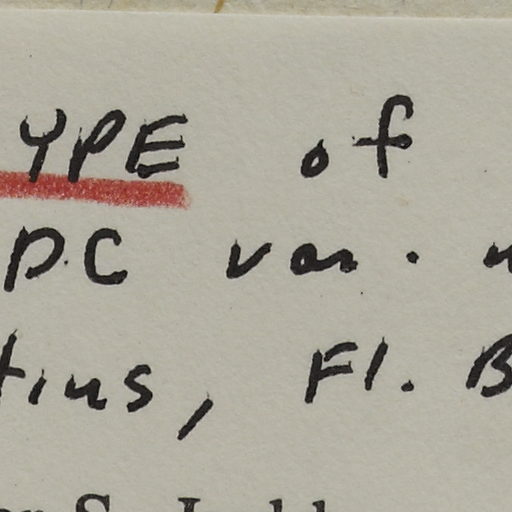 YPE of
DC var.
tius, Fl. B